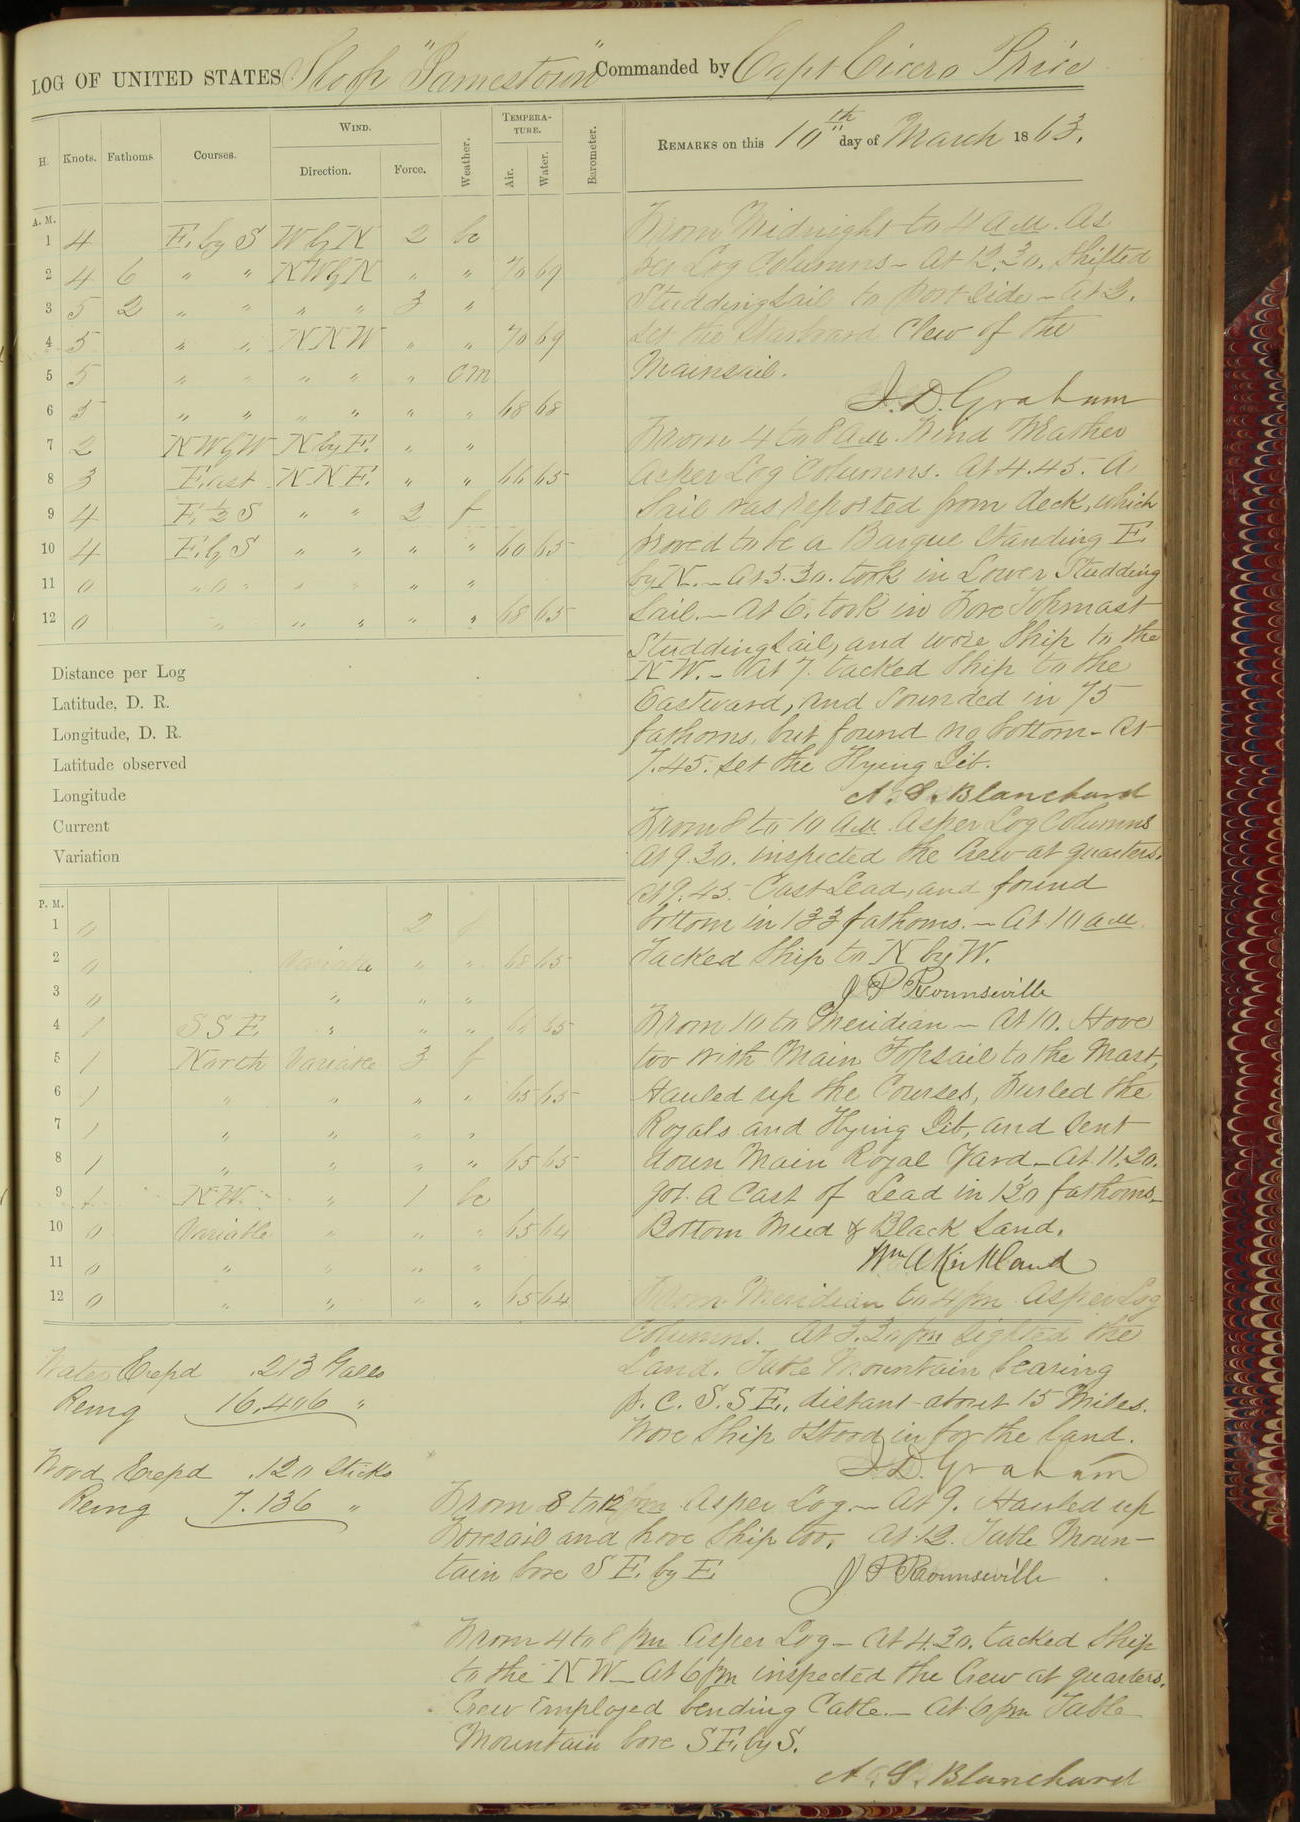 LOG OF UNITED STATES Sloop "Jamestown" Commanded by Capt Cicero Price
H. Knots. Fathoms. Courses. WIND. Direction. Force. Weather. TEMPERATURE. Air. Water. Barometer. REMARKS on this 10th day of March 1863.
A. M.
1 4 E. by S W by N 2 bc
2 4 6 " " NW by N " " 70 69
3 5 2 " " " " 3 "
4 5 " " NNW " " 70 69
5 5 " " " " " om
6 5 " " " " " " 68 68
7 2 NW by W N by E. " "
8 3 East NNE. " " 66 65
9 4 E. ½ S " " 2 f
10 4 E. by S " " " " 60 65
11 0 " " " " " "
12 0 " " " " " 68 65
Distance per Log
Latitude, D. R.
Longitude, D. R.
Latitude observed
Longitude
Current
Variation
P. M.
1 0 2 f
2 0 Variable " " 68 65
3 0 " " "
4 1 SSE " " " 65
5 1 North Variable 3 f
6 1 " " " " 65 65
7 1 " " " "
8 1 " " " " 65 65
9 1 NW. " 1 bc
10 0 Variable " " " 65 64
11 0 " " " "
12 0 " " " " 65 64
Water Expd 213 Galls
Remg 16.406 "
Wood Expd 120 Sticks
Remg 7.136 "
From Midnight to 4 a.m. As
per Log Columns - At 12.30. Shifted
Studdingsail to Port side - At 2.
set the Starboard Clew of the
Mainsail.
J. D. Graham
From 4 to 8 a.m. Wind Weather
as per Log Columns. At 4.45. A
Sail was reported from deck, which
proved to be a Barque Standing E.
by N. - At 5.30. took in Lower Studding
Sail. - At 6. took in Fore Topmast
Studdingsail, and wore Ship to the
N W. - At 7. tacked Ship to the
Eastward, and Sounded in 75
fathoms, but found no bottom - At
7.45. set the Flying Jib.
A. S. Blanchard
From 8 to 10 a.m. As per Log Columns
At 9.30. inspected the Crew at quarters.
at 9.45 Cast Lead, and found
bottom in 133 fathoms. - At 10 a.m.
Tacked Ship to N by W.
J P Rounseville
From 10 to Meridian - At 10. Hove
too with Main Topsail to the Mast,
Hauled up the Courses, Furled the
Royals and Flying Jib, and Sent
down Main Royal Yard - At 11.20.
got a Cast of Lead in 130 fathoms -
Bottom Mud & Black Sand.
Wm A Kirkland
From Meridian to 4 pm As per Log
Columns. At 3.30 pm Sighted the
Land. Table Mountain bearing
p. c. S. S E., distant about 15 Miles.
Wore Ship & Stood in for the land.
J. D. Graham
From 8 to 12 pm As per Log - At 9. Hauled up
Foresail and hove Ship too. At 12. Table Moun-
tain bore S E. by E
J P Rounseville
From 4 to 8 pm As per Log - At 4.30. tacked Ship
to the N W - At 6 pm inspected the Crew at quarters.
Crew Employed bending Cable. - At 6 pm Table
Mountain bore S E. by S.
A. S. Blanchard